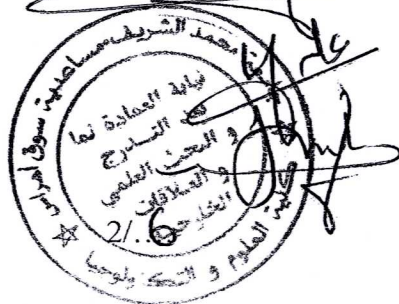 محمد الشريف مساعدية سوق أهراس
نيابة العمادة لما
بعد التدرج
و البحث العلمي
و العلاقات
الخارجية
2/..6
كلية العلوم و التكنولوجيا